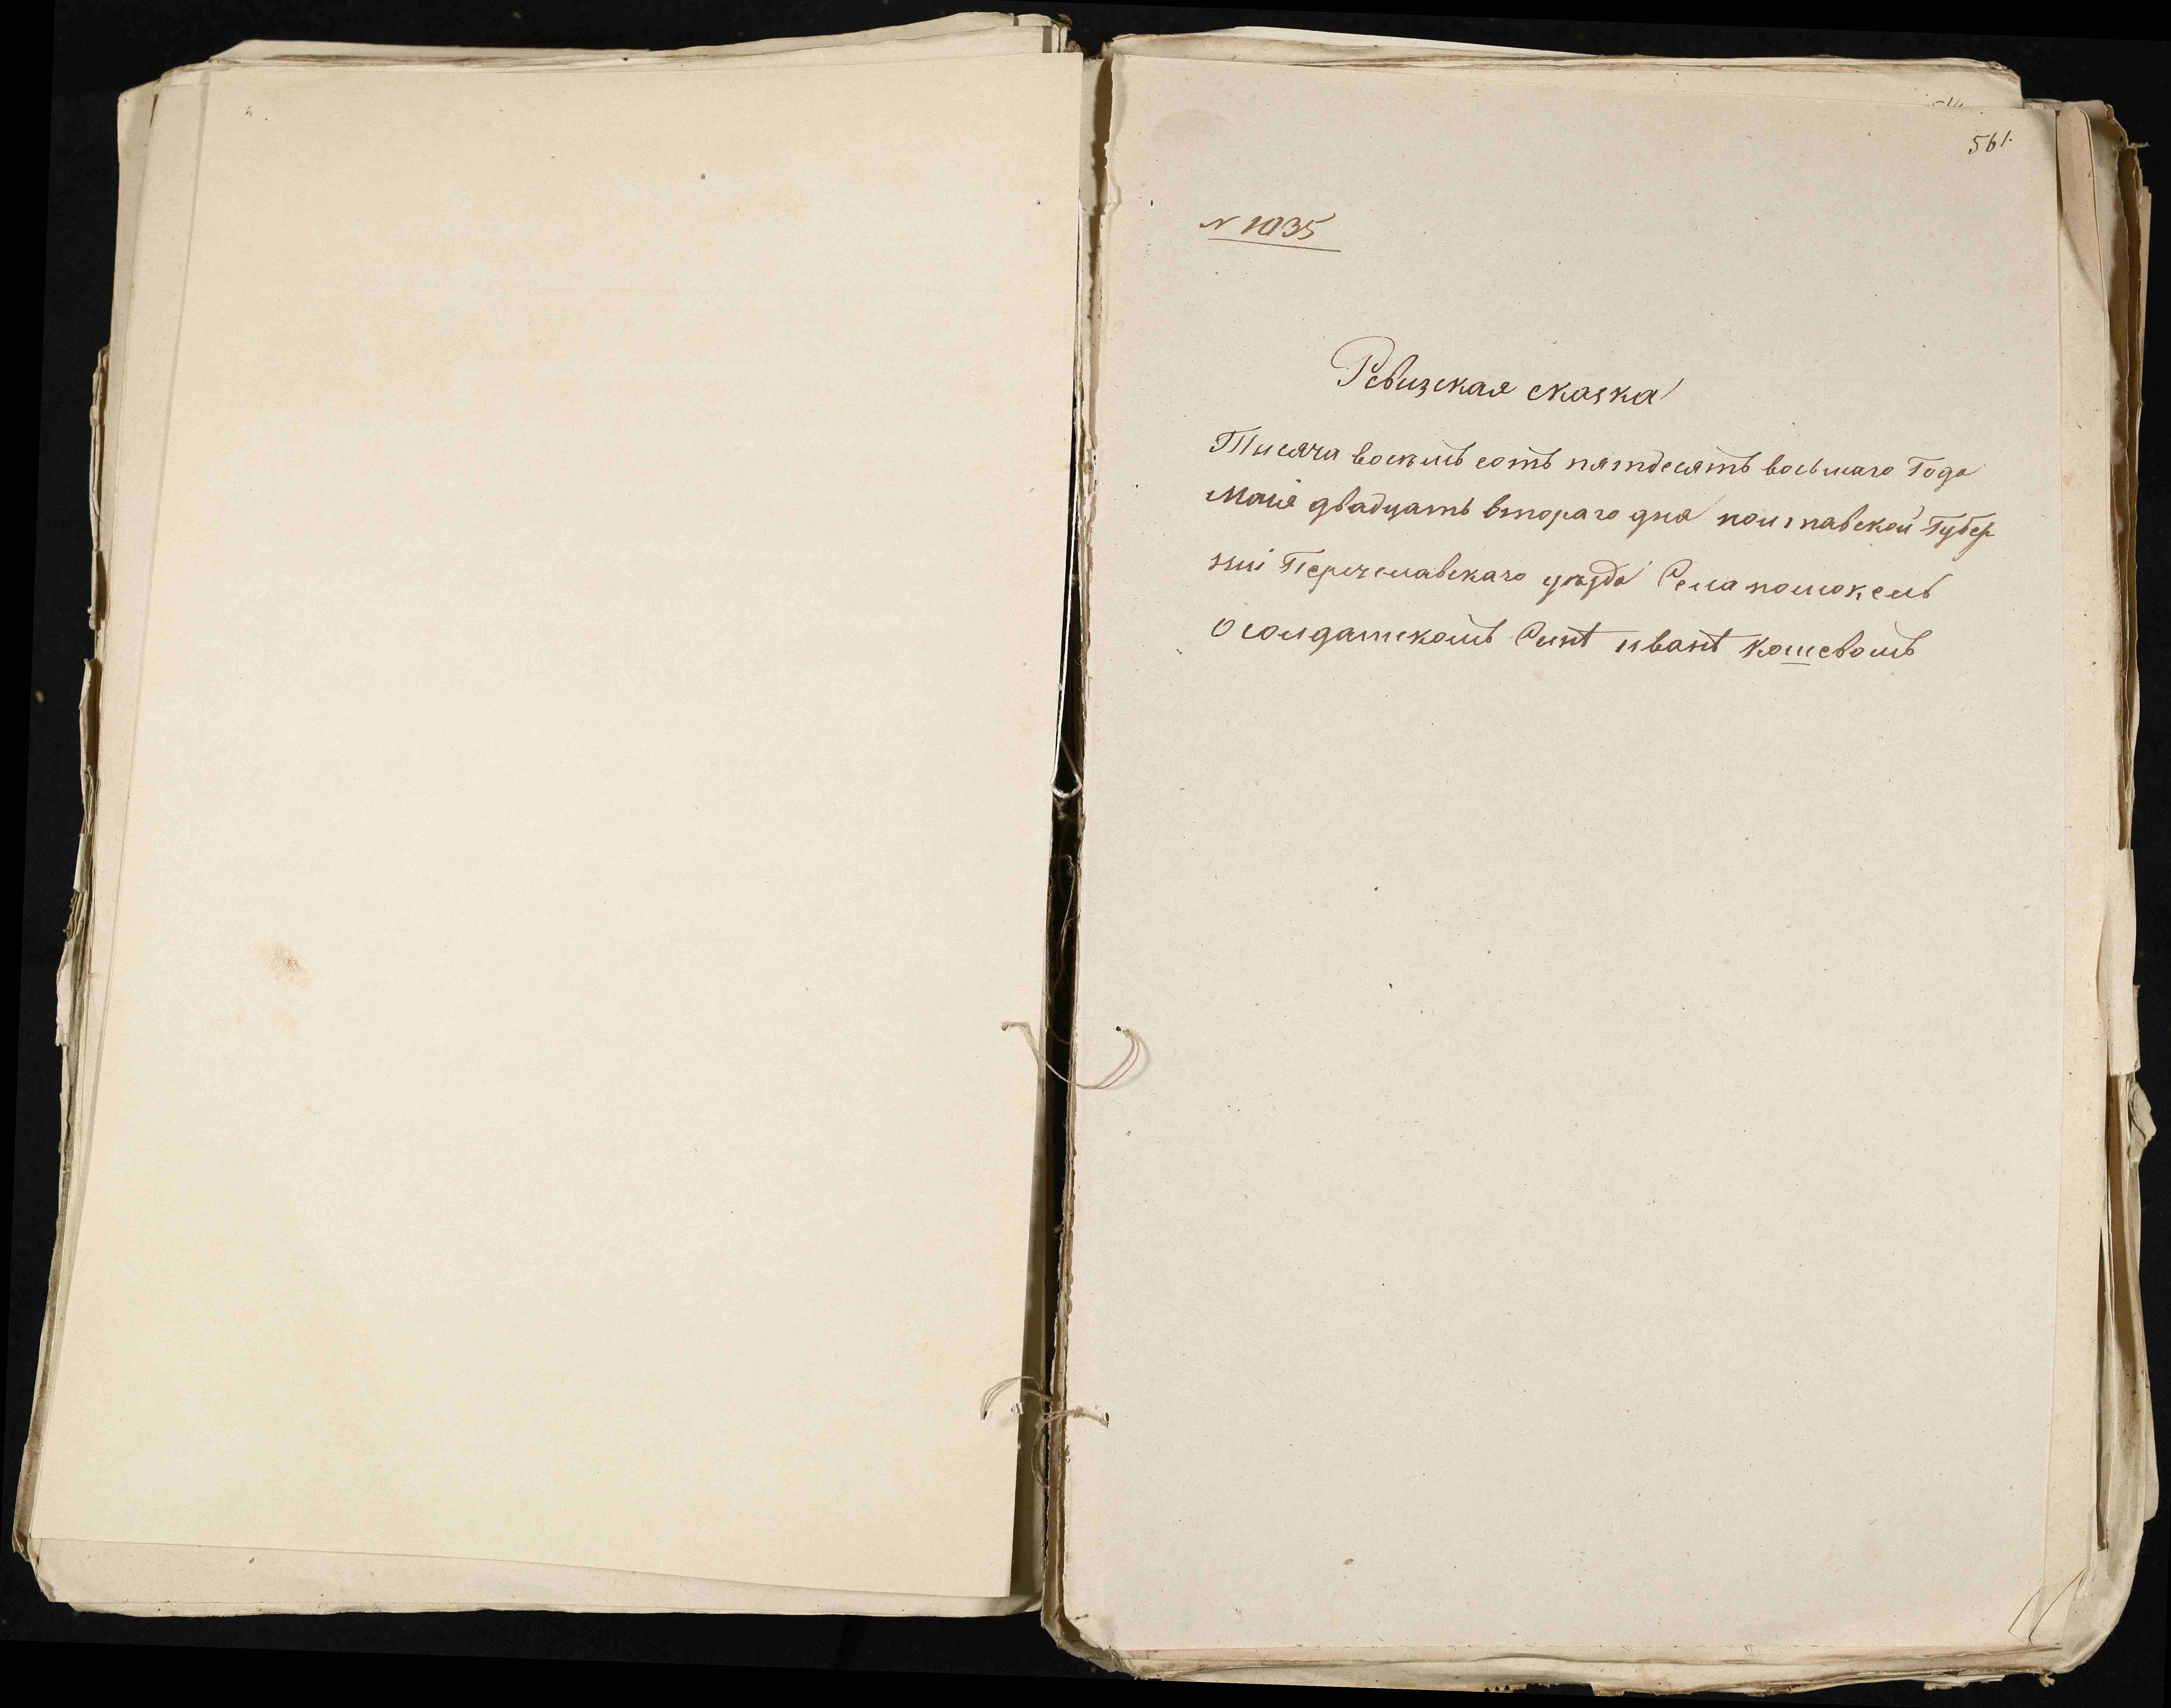 561.
№ 1035
Ревизская сказка
Тисяча восемь сотъ пятдесятъ восьмаго Года
Маия двадцать втораго дня полтавской Губер
нии Переяславскаго уезда Села помоклей
О солдатскомъ Сынѣ иванѣ Кошевомъ